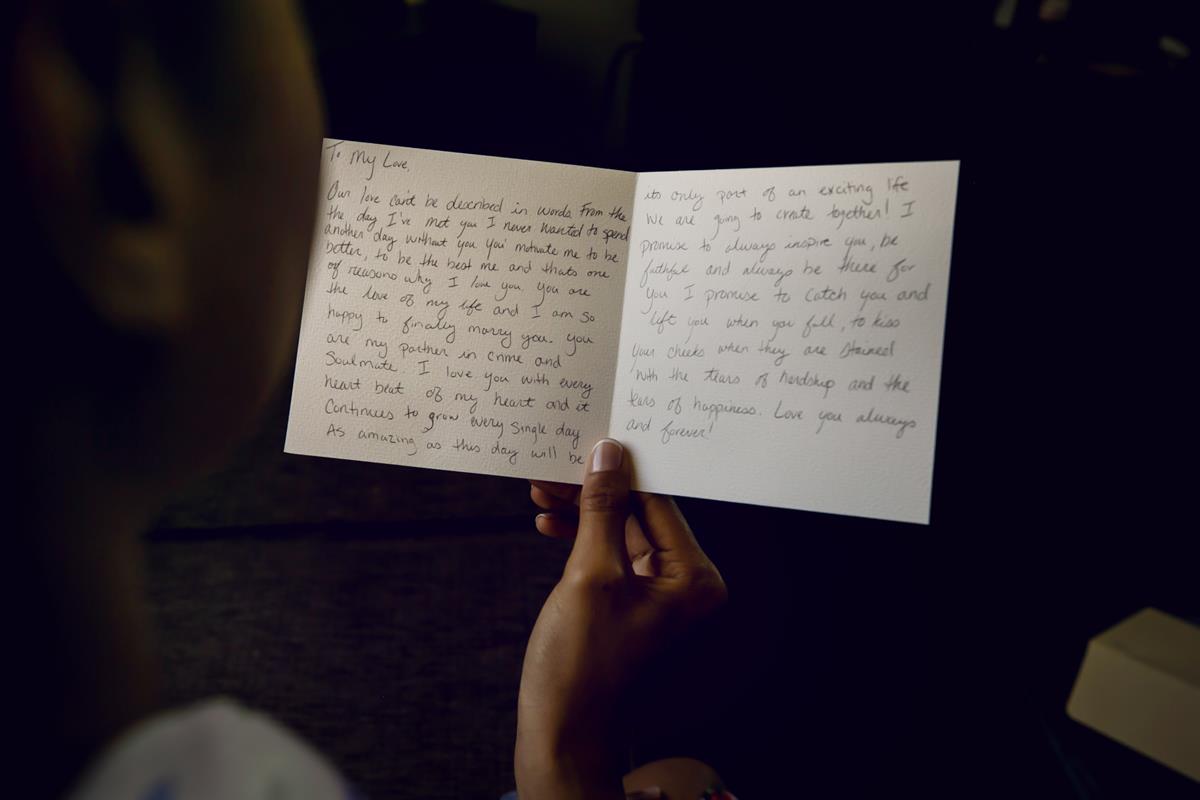 To My Love,
Our love can't be described in words. From the
the day I've met you I never wanted to spend
another day without you you' motivate me to be
better, to be the best me and thats one
of reasons why I love you. you are
the love of my life and I am so
happy to finally marry you. you
are my partner in crime and
Soulmate. I love you with every
heart beat of my heart and it
Continues to grow every single day
As amazing as this day will be
its only part of an exciting life
we are going to create together! I
promise to always inspire you, be
faithful and always be there for
you I promise to catch you and
lift you when you fall, to kiss
your cheeks when they are stained
with the tears of hardship and the
tears of happiness. Love you always
and forever!